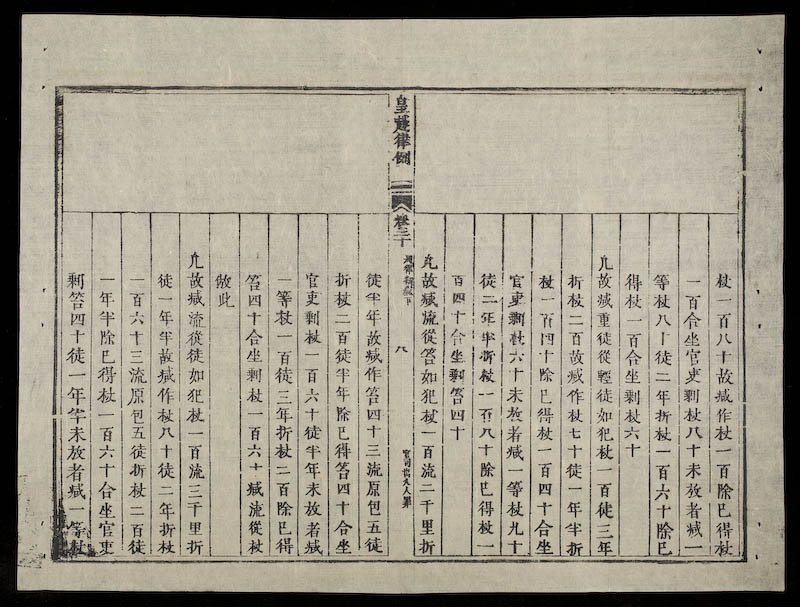 杖一百八十故减作杖一百除已得杖
一百合坐官吏剩杖八十未放者减一
等杖八十徒二年折杖一百六十除已
得杖一百合坐剩杖六十
凢故减重徒從輕徒如犯杖一百徒三年
折杖二百故减作杖七十徒一年半折
杖一百四十除已得杖一百四十合坐
官吏剩杖六十未放者减一等杖九十
徒二年半折杖一百八十除已得杖一
百四十合坐剩笞四十
凢故减流從笞如犯杖一百流二千里折
皇越律例
卷二十
刑律斷獄下
八
官司出入人罪
徒半年故减作笞四十三流原包五徒
折杖二百徒半年除已得笞四十合坐
官吏剩杖一百六十徒半年未放者减
一等杖一百徒三年折杖二百除已得
笞四十合坐剩杖一百六十减流從杖
倣此
凢故减流從徒如犯杖一百流三千里折
徒一年半故减作杖八十徒二年折杖
一百六十三流原包五徒折杖二百徒
一年半除已得杖一百六十合坐官吏
剩笞四十徒一年半未放者减一等杖